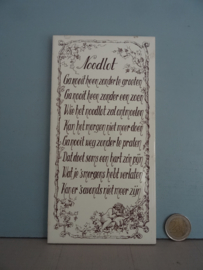 Noodlot
Ga nooit heen zonder te groeten
Ga nooit heen zonder een zoen
Wie het noodlot zal ontmoeten
Kan het morgen niet meer doen
Ga nooit weg zonder te praten
Dat doet soms een hart zo'n pijn
Wat je 's morgens hebt verlaten
Kan er 's avonds niet meer zijn